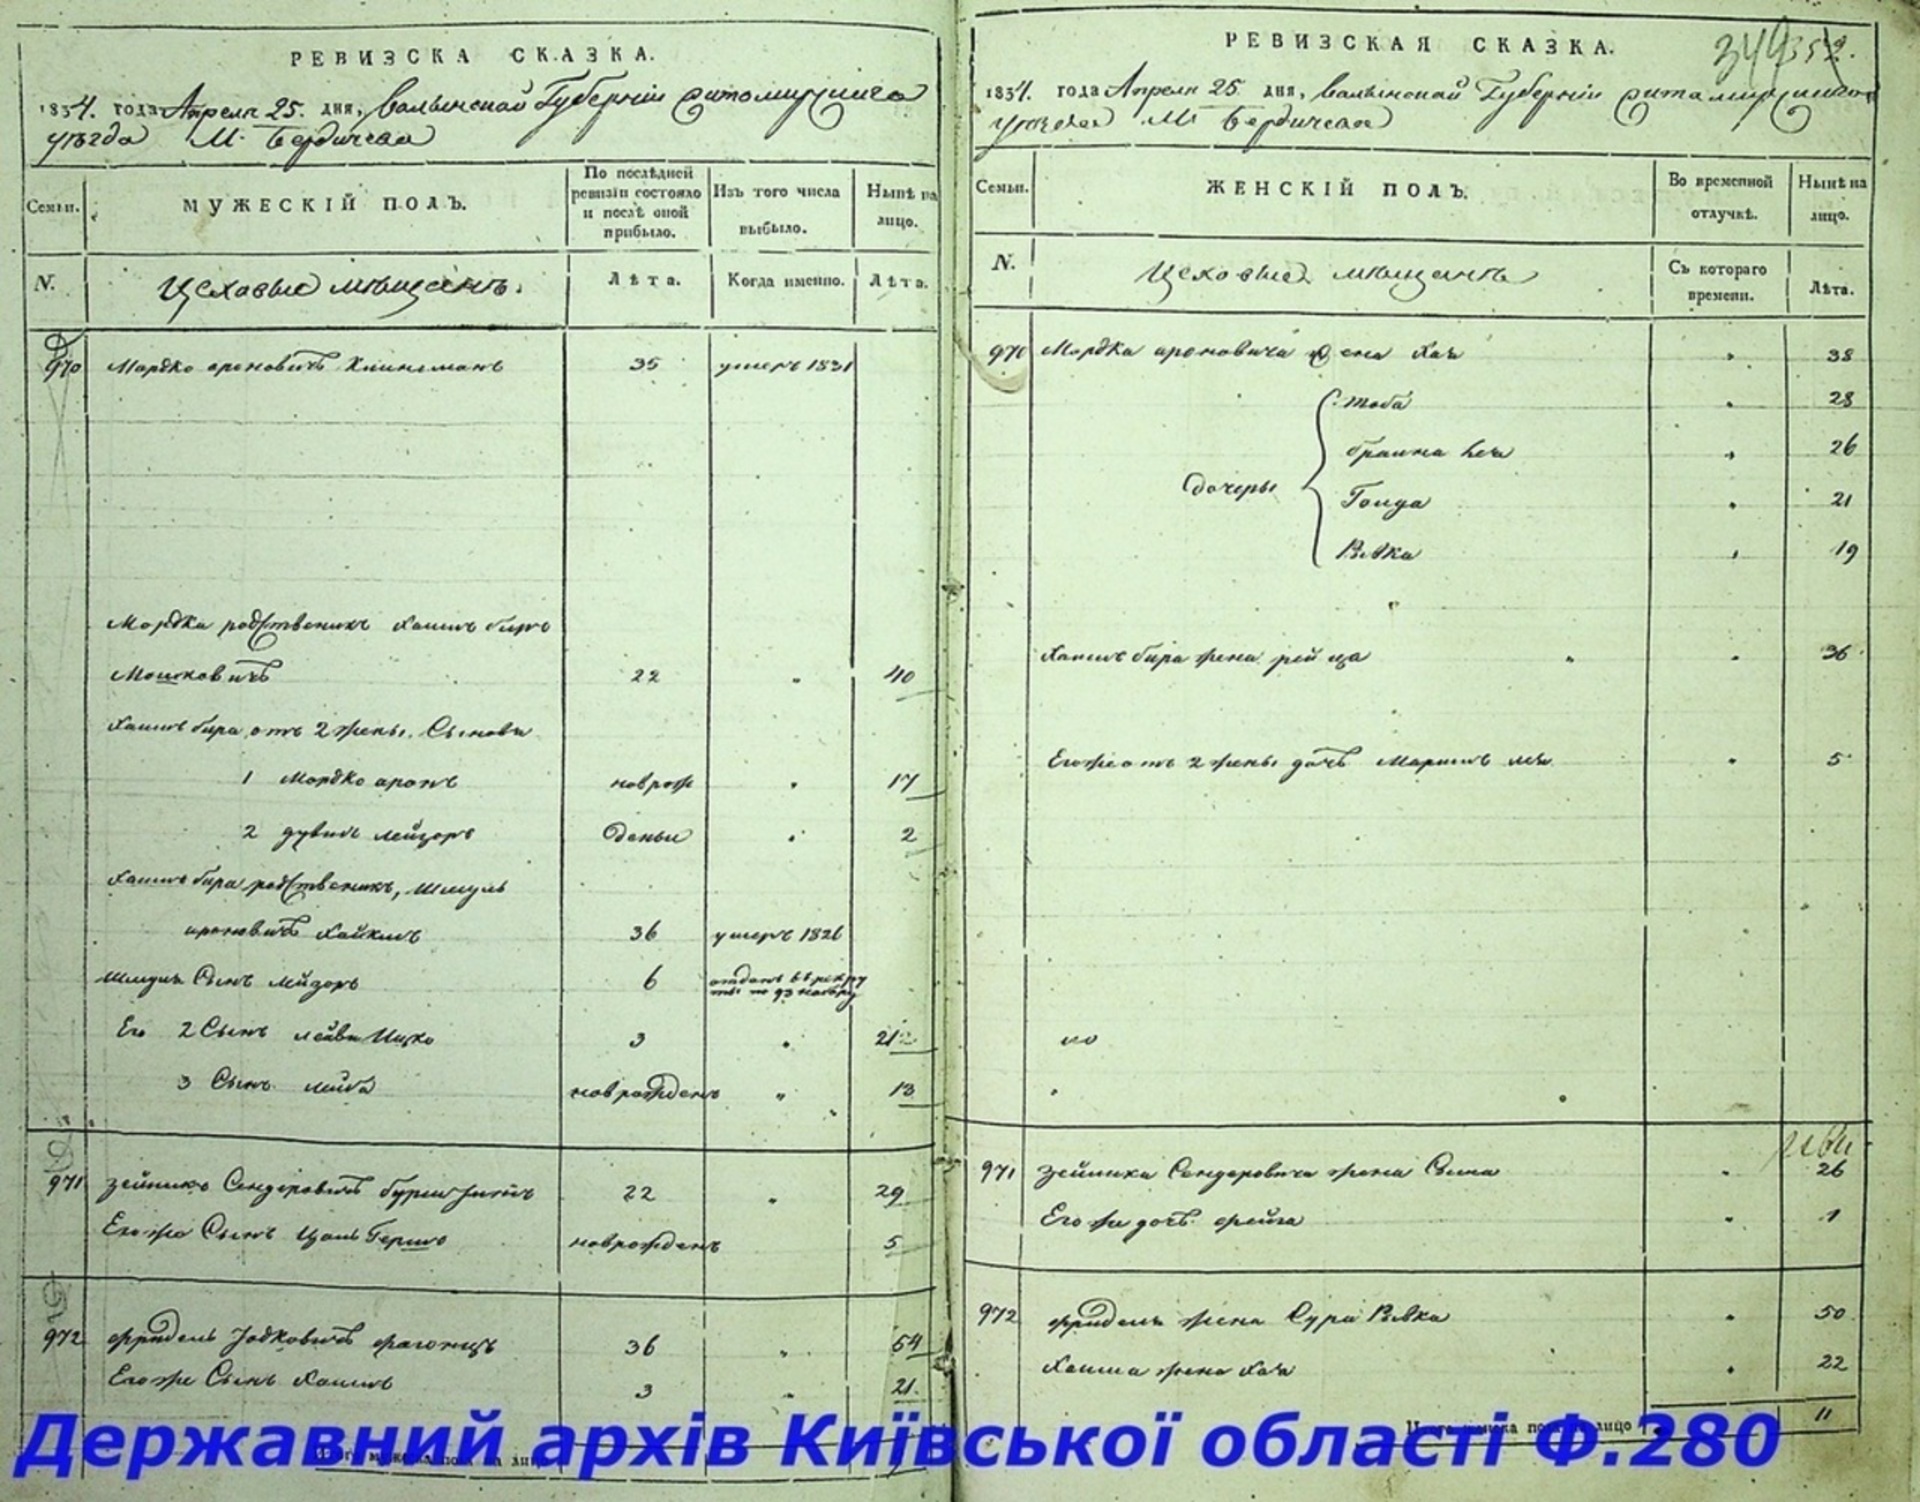 РЕВИЗСКА СКАЗКА.
1834. года Апреля 25. дня, Волынской Губернiи Житомирскаго
уѣзда М. Бердичева
Семьи.
МУЖЕСКIЙ ПОЛЪ.
По послѣдней ревизiи состояло и послѣ оной прибыло.
Изъ того числа выбыло.
Нынѣ на лицо.
N.
Цеховые мещанъ.
Лѣта.
Когда именно.
Лѣта.
970 Мордко ароновичъ 35 умеръ 1831
Мордка родственикъ Хаимъ беръ
Мошковичъ 22 " 40
Хаимъ бера отъ 2 жены Сыновя
1 Мордко аронъ новрож " 17
2 дувидъ лейзоръ деныи " 2
Хаимъ бера родственикъ, Шмуль
ароновичъ Хайкинъ 36 умеръ 1826
Шмуля Сынъ лейзоръ 6 отданъ в рекру
ты
Его 2 Сынъ лейви Ицко 3 " 21
3 Сынъ лейба новрожденъ " 13
971 Зейлико Сендеровичъ 22 " 29
Егоже Сынъ Цаль Гершко новрожденъ 5
972 фридель Іодковичъ 36 " 54
Егоже Сынъ Хаимъ 3 " 21.
РЕВИЗСКАЯ СКАЗКА.
344 352.
1834. года Апреля 25 дня, Волынской Губернiи Житомирскаго
уѣзда М. Бердичева
Семьи.
ЖЕНСКIЙ ПОЛЪ.
Во временной отлучкѣ.
Нынѣ на лицо.
N.
Цеховые мещанъ
Съ котораго времени.
Лѣта.
970 Мордка ароновича жена Хая " 38
тоба " 28
браина лея " 26
дочеры
Голда " 21
Ривка " 19
Хаимъ бера жена рейза " 36
Егоже отъ 2 жены дочь Маримъ лея " 5
971 Зейлика Сендеровича жена Сима " 26
Его же дочь фейга " 1
972 фриделя жена Сура Ривка " 50
Хаима жена Хая " 22
Итого женска пола на лицо 11
Итого мужеска пола на лицо
Державний архів Київської області Ф.280